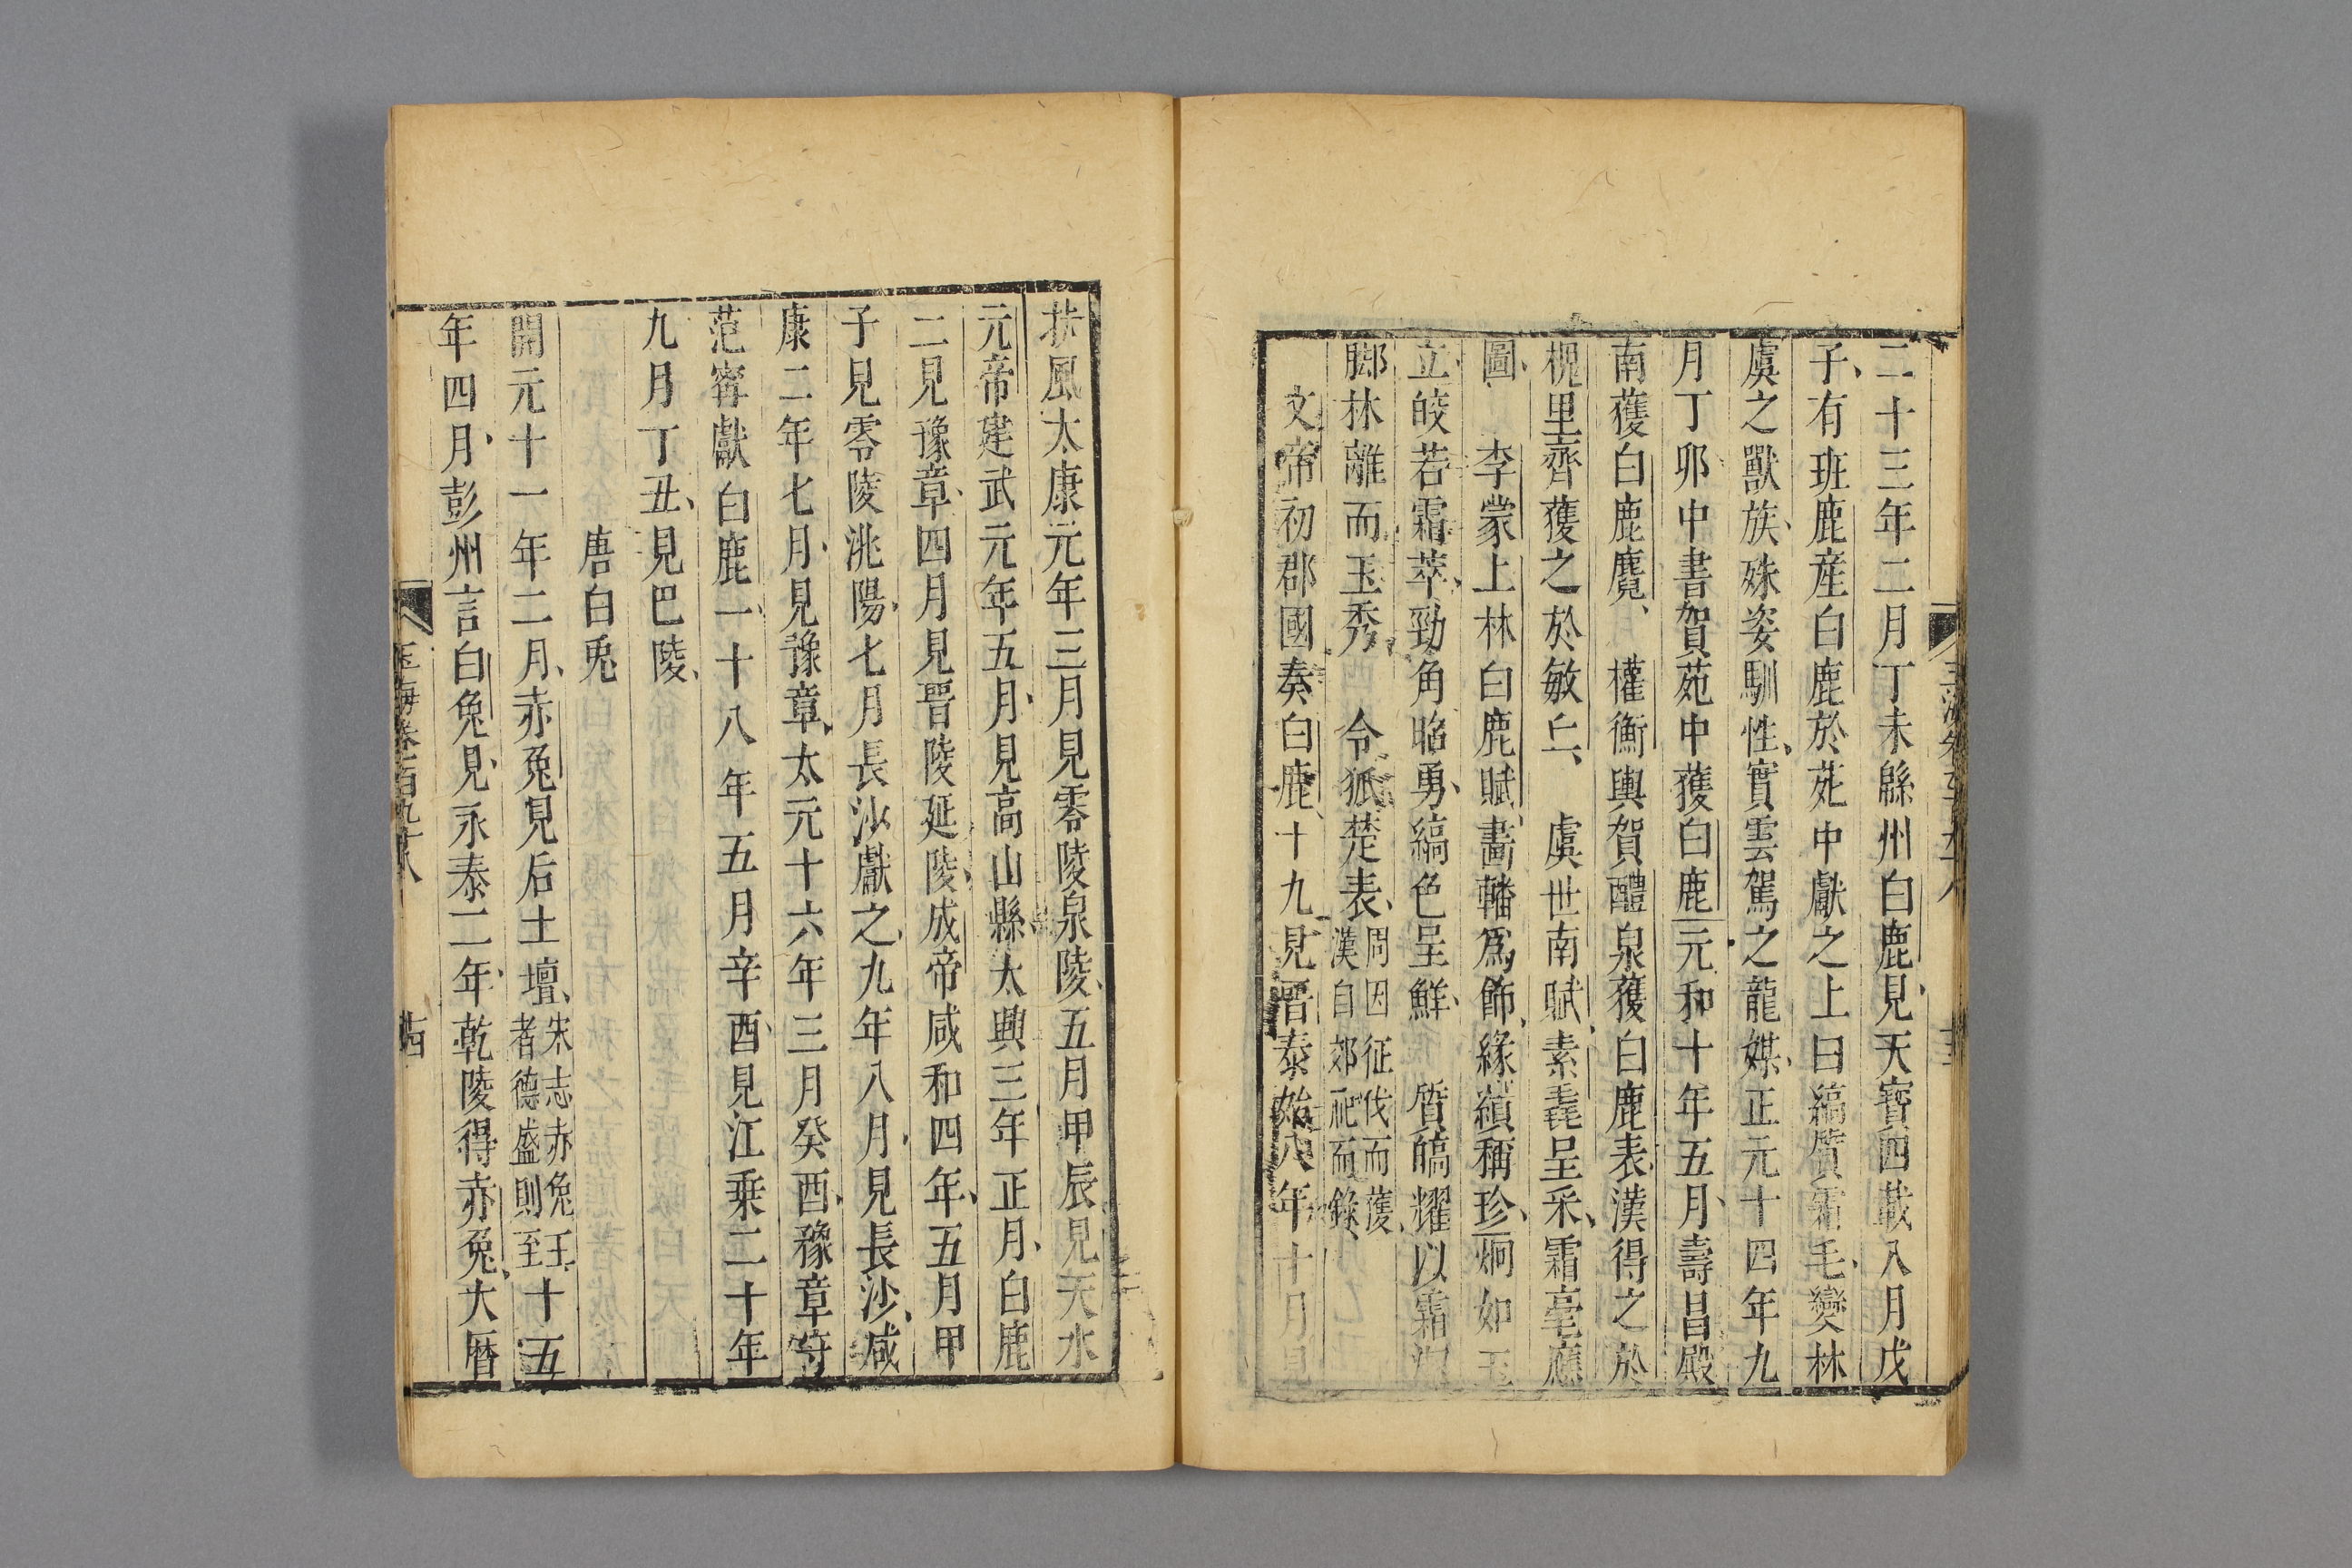 二十三年二月丁未緜州白鹿見天寶四載八月戊
子有班鹿産白鹿於苑中獻之上曰縞質霜毛變林
虞之獸族殊姿馴性實雲駕之龍媒正元十四年九
月丁卯中書賀苑中獲白鹿元和十年五月壽昌殿
南獲白鹿麑權衡輿賀醴泉獲白鹿表漢得之於
槐里齊獲之於敏丘虞世南賦素毳呈采霜毫應
圖李蒙上林白鹿賦畵轓爲飾緣繢稱珍炯如玉
立皎若霜萃勁角昭勇縞色呈鮮質皜耀以霜
脚林離而玉秀令狐楚表周因征伐而獲漢自郊祀而錄
文帝初郡國奏白鹿十九見晋泰始八年十月見
玉海卷一百九十八
十三
扶風太康元年三月見零陵泉陵五月甲辰見天水
元帝建武元年五月見高山縣太興三年正月白鹿
二見豫章四月見晋陵延陵成帝咸和四年五月甲
子見零陵洮陽七月長沙獻之九年八月見長沙咸
康二年七月見豫章太元十六年三月癸酉豫章守
范甯獻白鹿一十八年五月辛酉見江乗二十年
九月丁丑見巴陵
唐白兎
開元十一年二月赤兔見后土壇宋志赤兔王者德盛則至十五
年四月彭州言白兔見永泰二年乾陵得赤兔大曆
玉海卷一百九十八
十四